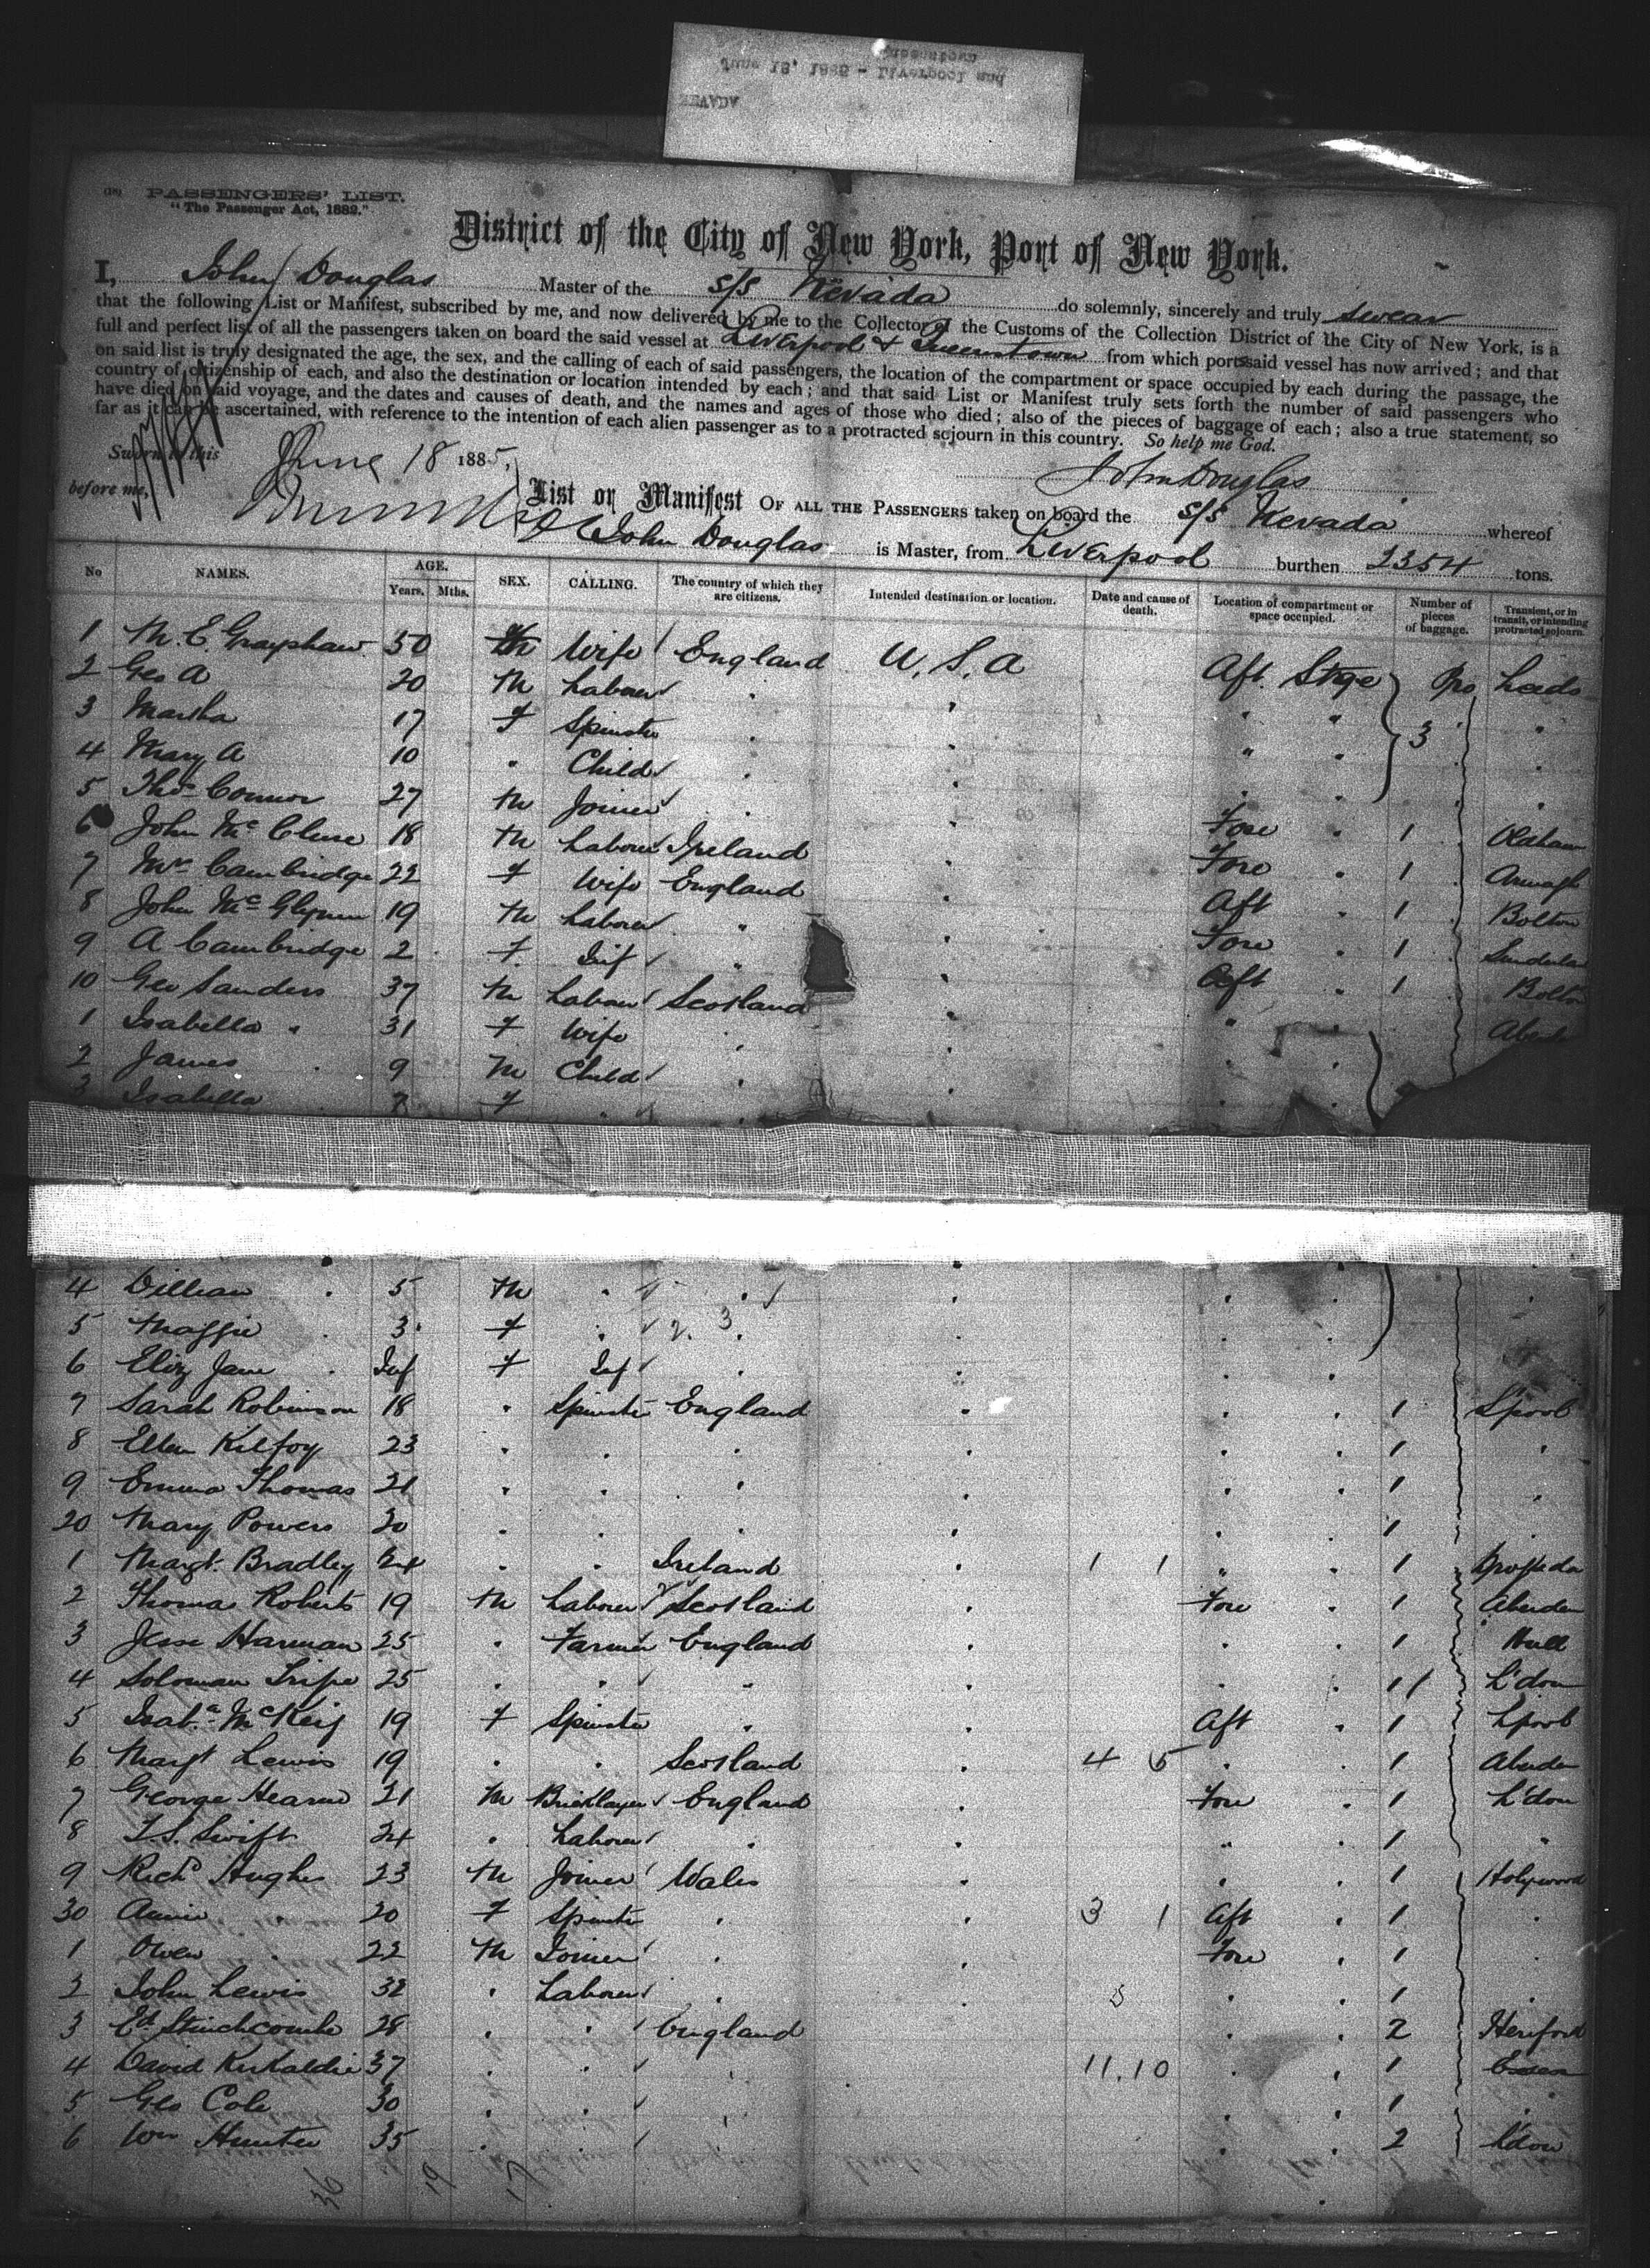 Queenstown
June 18, 1885 - Liverpool and
NEVADA
PASSENGERS' LIST.
"The Passenger Act, 1882."
District of the City of New York, Port of New York.
I, John Douglas Master of the s/s Nevada do solemnly, sincerely and truly swear
that the following List or Manifest, subscribed by me, and now delivered by me to the Collector of the Customs of the Collection District of the City of New York, is a
full and perfect list of all the passengers taken on board the said vessel at Liverpool & Queenstown from which ports said vessel has now arrived; and that
on said list is truly designated the age, the sex, and the calling of each of said passengers, the location of the compartment or space occupied by each during the passage, the
country of citizenship of each, and also the destination or location intended by each; and that said List or Manifest truly sets forth the number of said passengers who
have died on said voyage, and the dates and causes of death, and the names and ages of those who died; also of the pieces of baggage of each; also a true statement, so
far as it can be ascertained, with reference to the intention of each alien passenger as to a protracted sojourn in this country. So help me God.
Sworn to this June 18 1885, John Douglas
before me,
List or Manifest OF ALL THE PASSENGERS taken on board the s/s Nevada whereof
John Douglas is Master, from Liverpool burthen 2354 tons.
No NAMES. AGE. Years. Mths. SEX. CALLING. The country of which they are citizens. Intended destination or location. Date and cause of death. Location of compartment or space occupied. Number of pieces of baggage. Transient, or in transit, or intending protracted sojourn.
1 M. E. Grayshaw 50 f Wife England U.S.A Aft Stge Pro Leeds
2 Geo A 20 m Laborer " " " " 3 "
3 Martha 17 f Spinster " " " " "
4 Mary A 10 " Child " " " " "
5 Thos Connor 27 m Joiner " " Fore " 1 Oldham
6 John McClure 18 m Labourer Ireland " Fore " 1 Armagh
7 Mrs Cambridge 22 f Wife England " Aft " 1 Bolton
8 John McGlynn 19 m Laborer " " Fore " 1
9 A Cambridge 2 f Inf " " Aft " 1 Bolton
10 Geo Sanders 37 m Labour Scotland " "
1 Isabella " 31 f Wife " " " "
2 James " 9 m Child " " " "
3 Isabella 7 f " " " " "
4 William " 5 m " " " " " "
5 Maggie " 3 f " " " " "
6 Eliz Jane " Inf f Inf " " " "
7 Sarah Robinson 18 " Spinster England " " " 1 L'pool
8 Ellen Kilfoy 23 " " " " " " 1 "
9 Emma Thomas 21 " " " " " " 1 "
20 Mary Powers 20 " " " " " " 1 "
1 Margt. Bradley 24 " " Ireland " 1 1 " " 1
2 Thomas Roberts 19 m Laborer Scotland " Fore " 1 Aberdeen
3 Jesse Harman 25 " Farmer England " " " 1 Hull
4 Soloman Tripe 25 " " " " " " 1 L'don
5 Isab.a McKeig 19 f Spinster " " Aft " 1 L'pool
6 Margt Lewis 19 " " Scotland " 4 5 " " 1 Aberdeen
7 George Hearne 21 m Bricklayer England " Fore " 1 L'don
8 T.S. Swift 24 " Laborer " " " " 1 "
9 Richd Hughes 23 m Joiner Wales " " " 1 Holywood
30 Annie " 20 f Spinster " " 3 1 Aft " 1 "
1 Owen " 22 m Joiner " " Fore " 1 "
2 John Lewis 32 " Laborer " " " " 1 "
3 Ed Stinchcombe 28 " " England " " 2 Hereford
4 David Kirkaldie 37 " " " 11.10 " " 1 Essex
5 Geo Cole 30 " " " " " 1 "
6 Wm Hunter 35 " " " " " 2 L'don
36 19 17